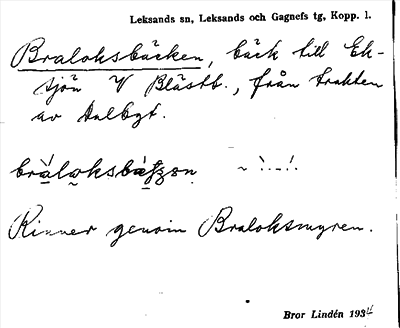 Leksands sn, Leksands och Gagnefs tg, Kopp. l.
Braloksbäcken, bäck till Ek-
sjön V Blästb., från trakten
av
Rinner genom Braloksmyren.
Bror Lindén 193